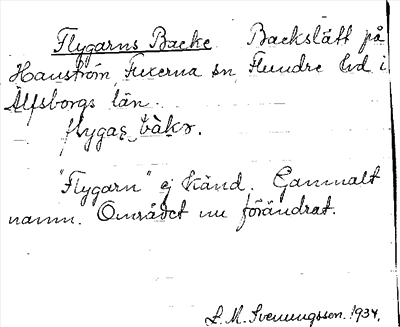 Flygarns Backe Backslätt på
Hanström Fuxerna sn Flundre hd i
Älfsborgs län.
flygaṣ bàkɘ.
"Flygarn" ej känd. Gammalt
namn. Området nu förändrat.
L. M. Svenungsson. 1934.